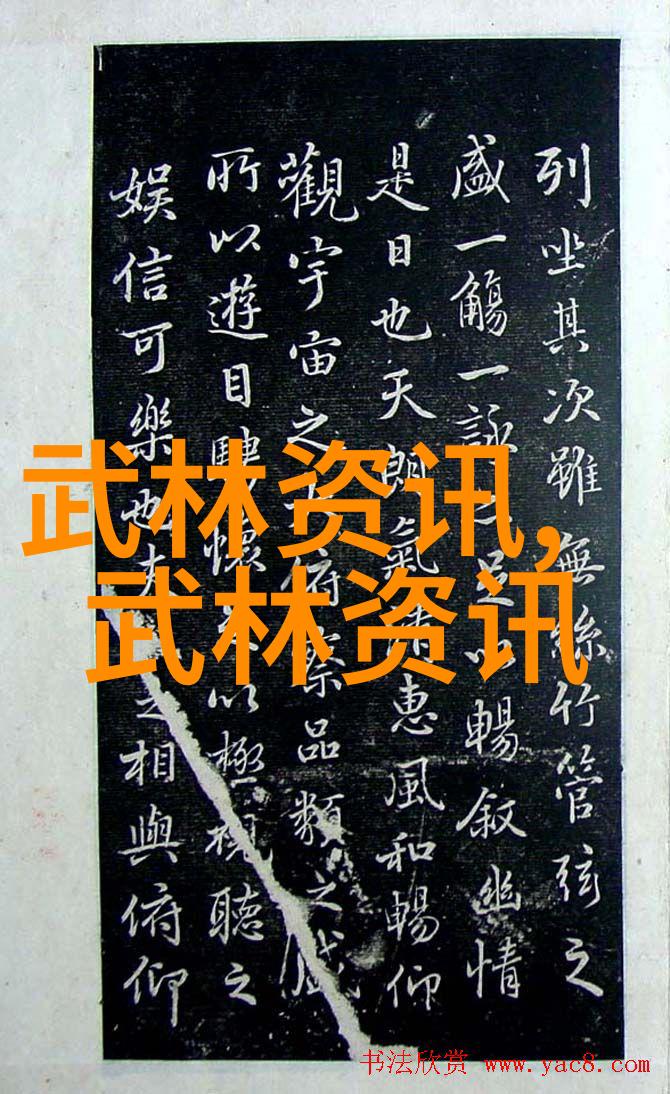 列坐其次雖無絲竹管弦之
盛一觴一詠足以暢叙幽情
是日也天朗氣清惠風和暢仰
觀宇宙之大俯察品類之盛
所以遊目騁懷以極視聽之
娛信可樂也夫之相與俯仰
武林资讯,
武林资讯
书法欣赏 www.yac8.com